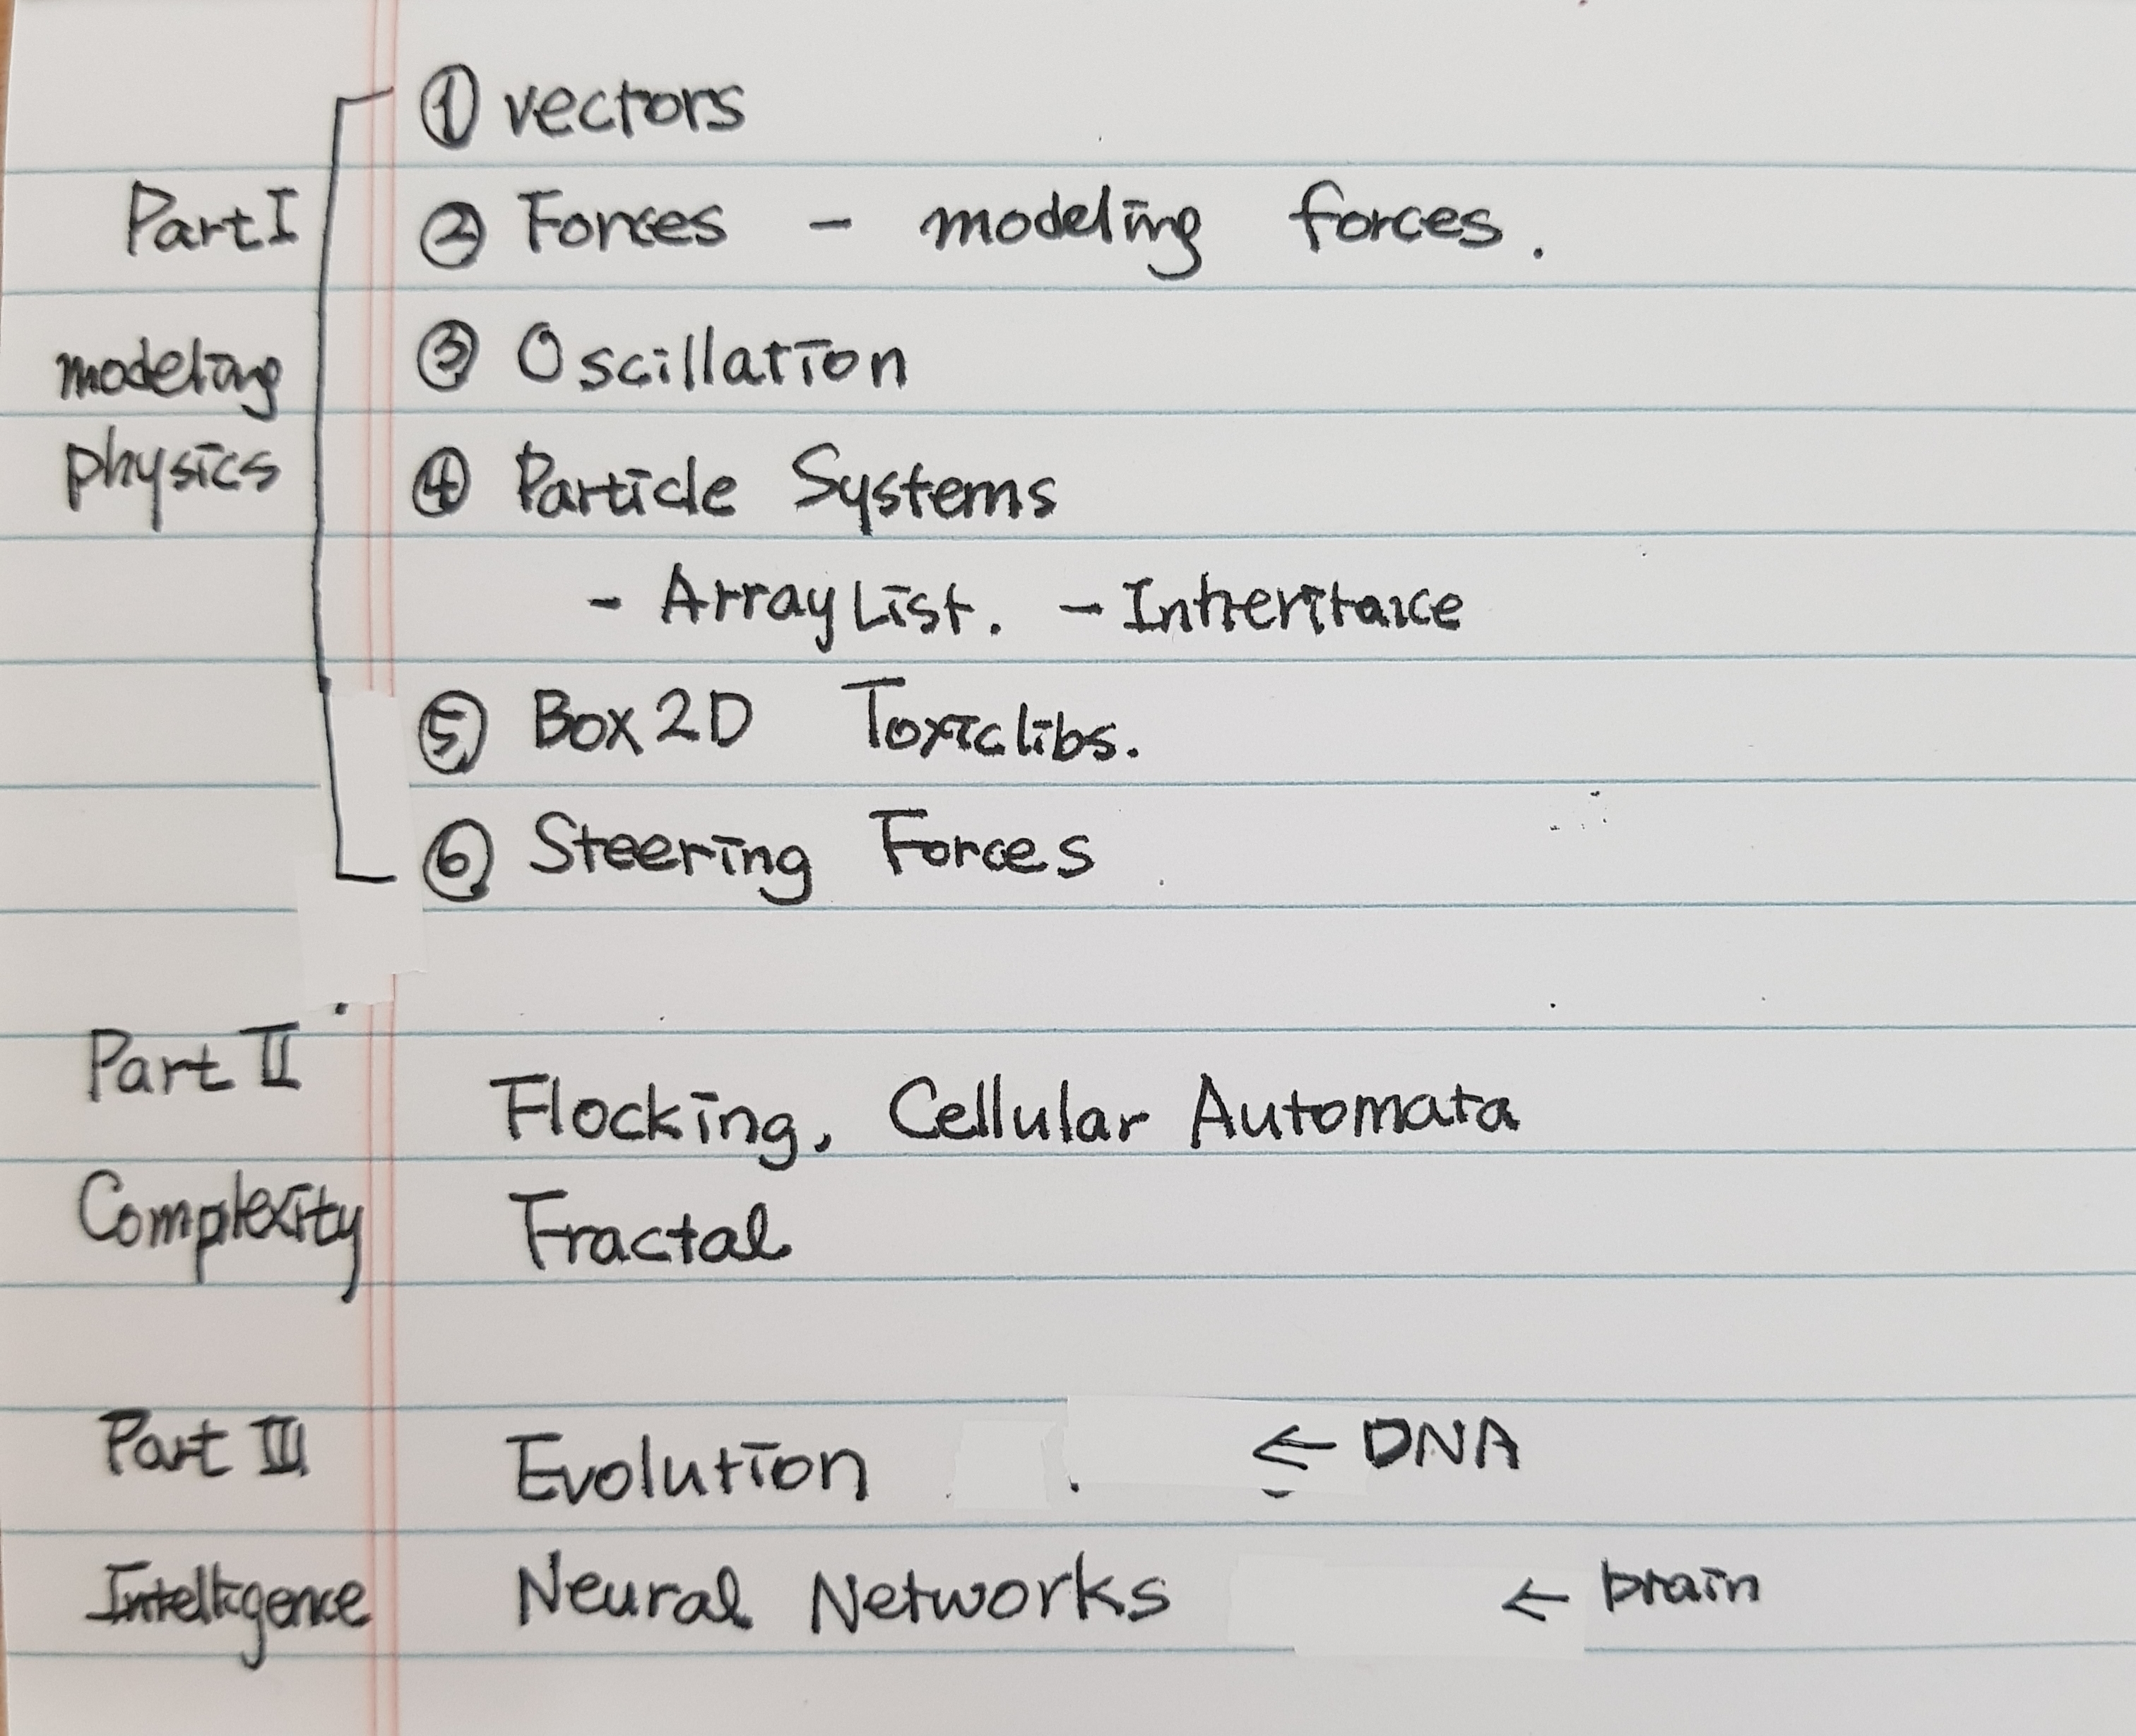 ① vectors
Part I ② Forces - modeling forces.
modeling ③ Oscillation
physics ④ Particle Systems
- ArrayList. - Inheritance
⑤ Box2D Toxiclibs.
⑥ Steering Forces
Part II Flocking, Cellular Automata
Complexity Fractal
Part III Evolution ← DNA
Intelligence Neural Networks ← brain